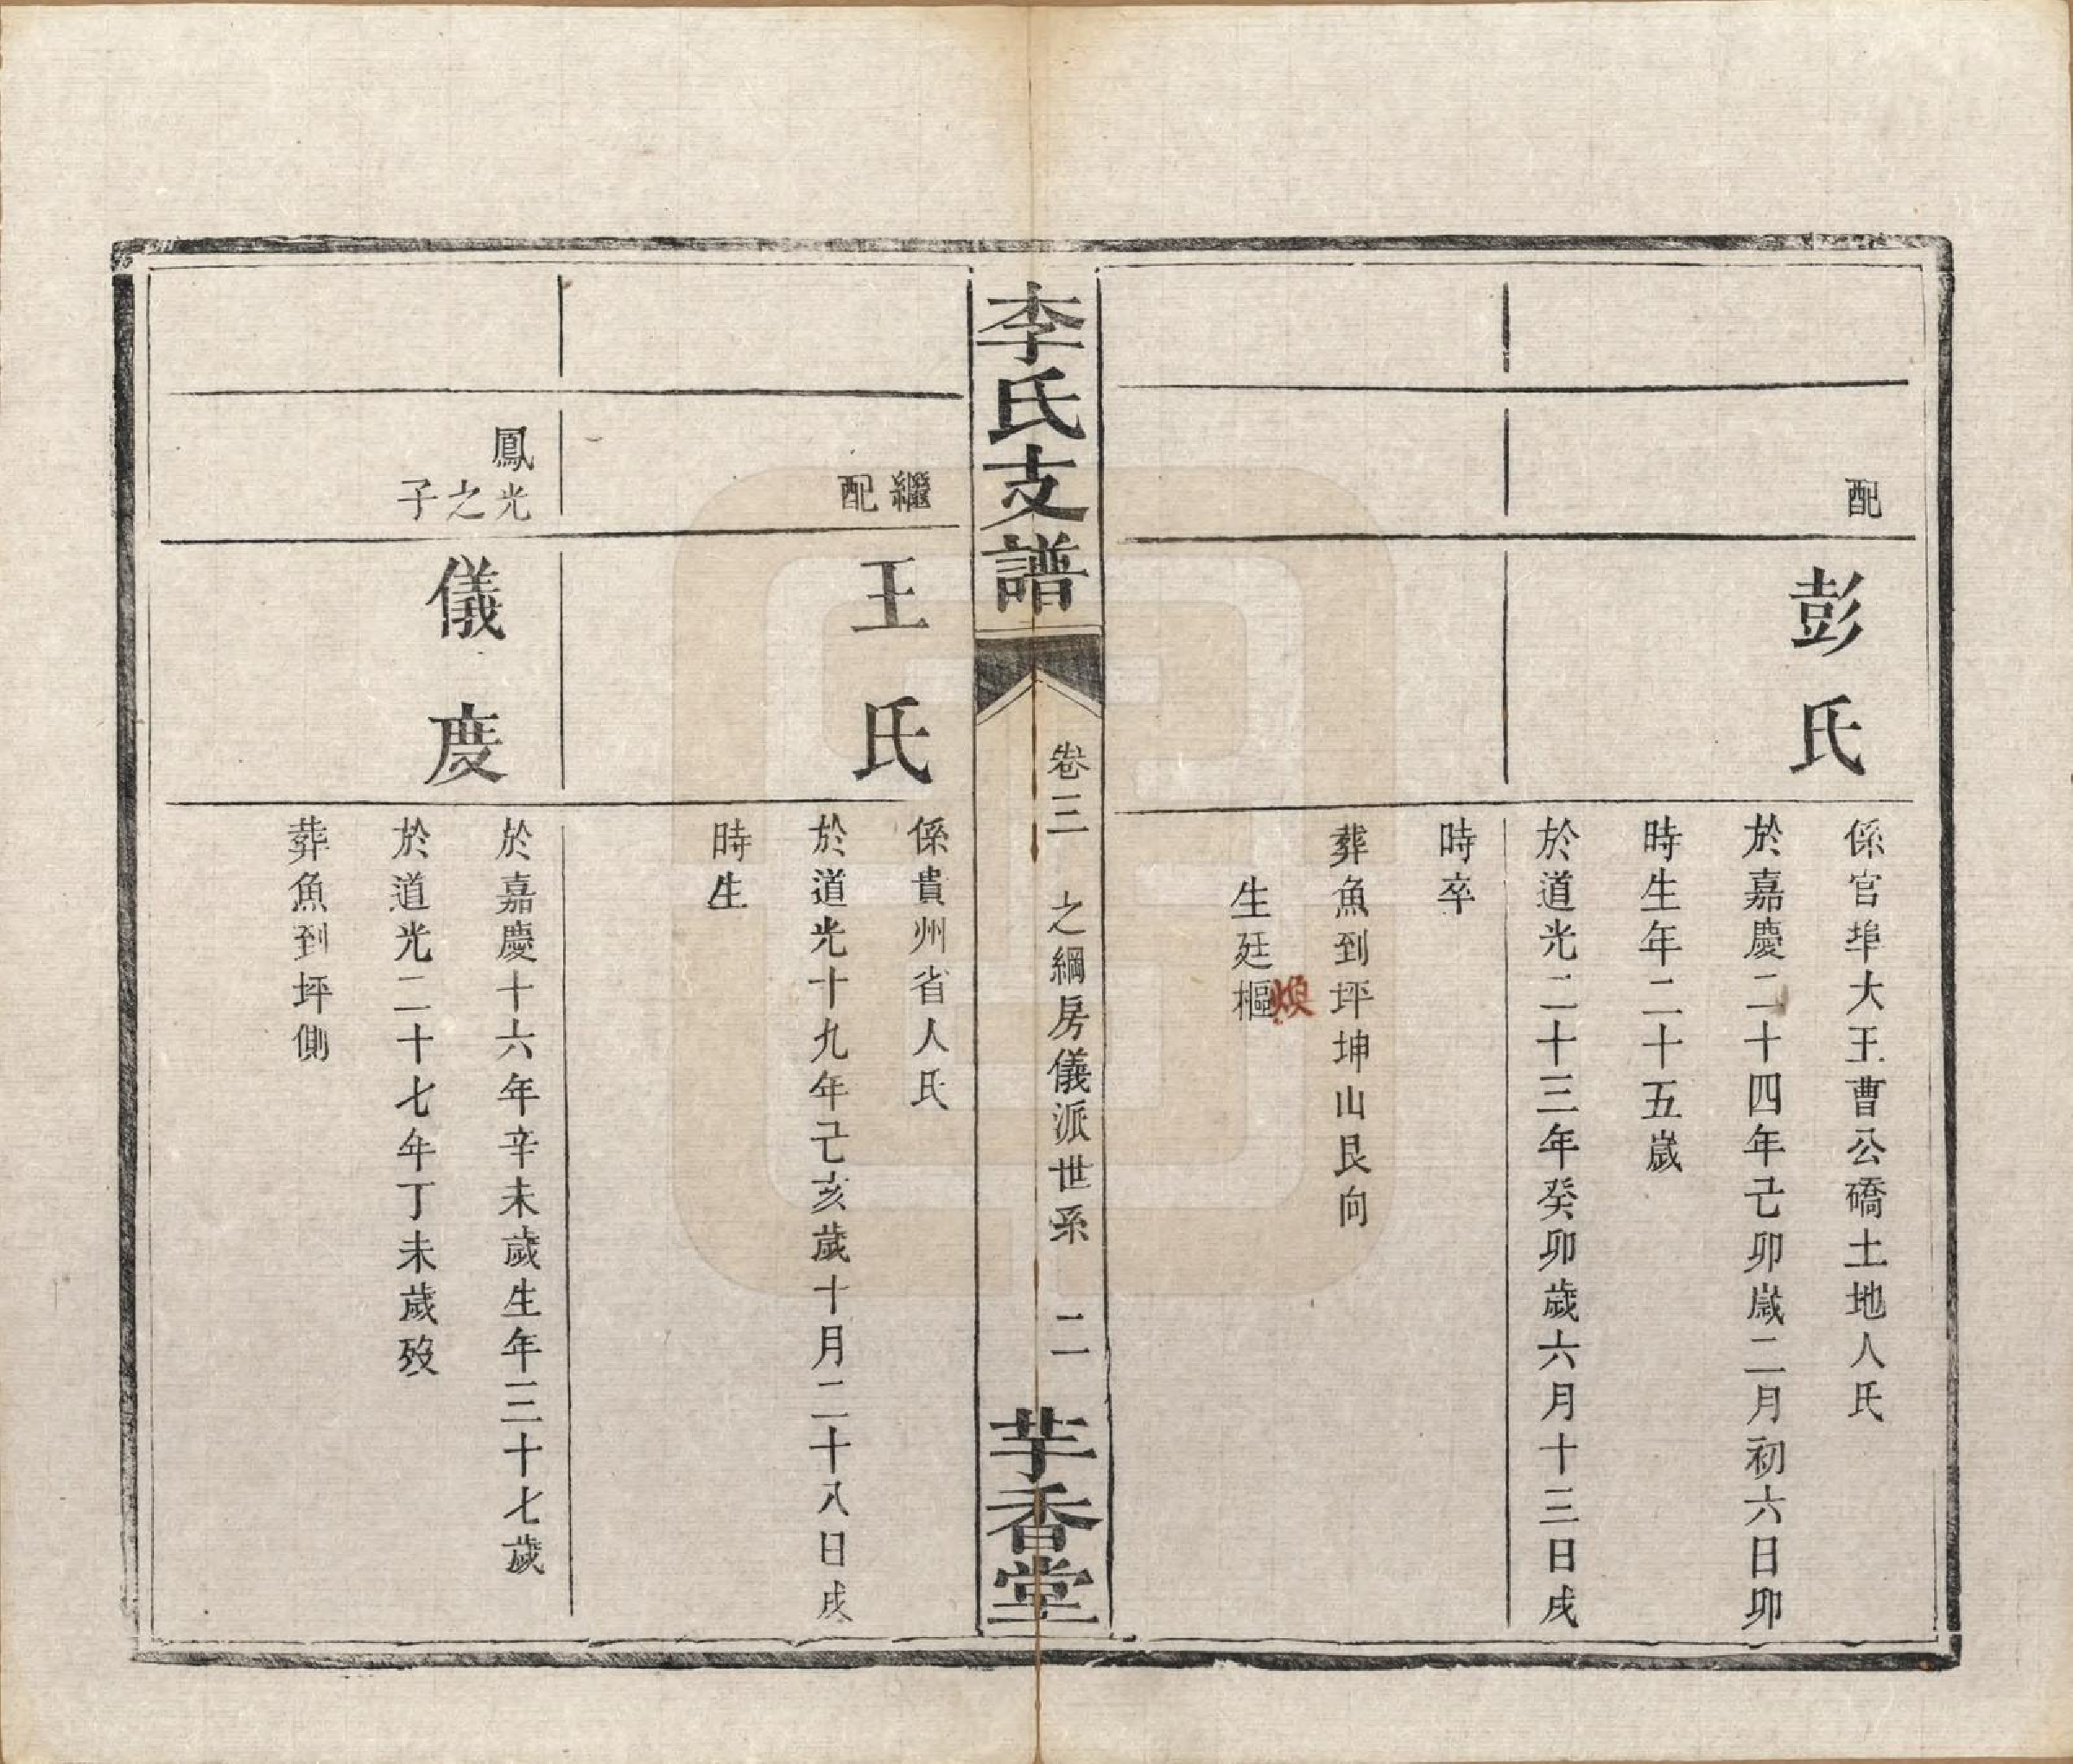 配
彭氏
係官埠大王曹公礄土地人氏
於嘉慶二十四年己卯歲二月初六日卯
時生年二十五歲
於道光二十三年癸卯歲六月十三日戌
時卒
葬魚到坪坤山艮向
生廷樞
煥
李氏支譜
卷三
之綱房儀派世系
二
芋香堂
繼配
王氏
係貴州省人氏
於道光十九年己亥歲十月二十八日戌
時生
鳳光之子
儀度
於嘉慶十六年辛未歲生年三十七歲
於道光二十七年丁未歲歿
葬魚到坪側